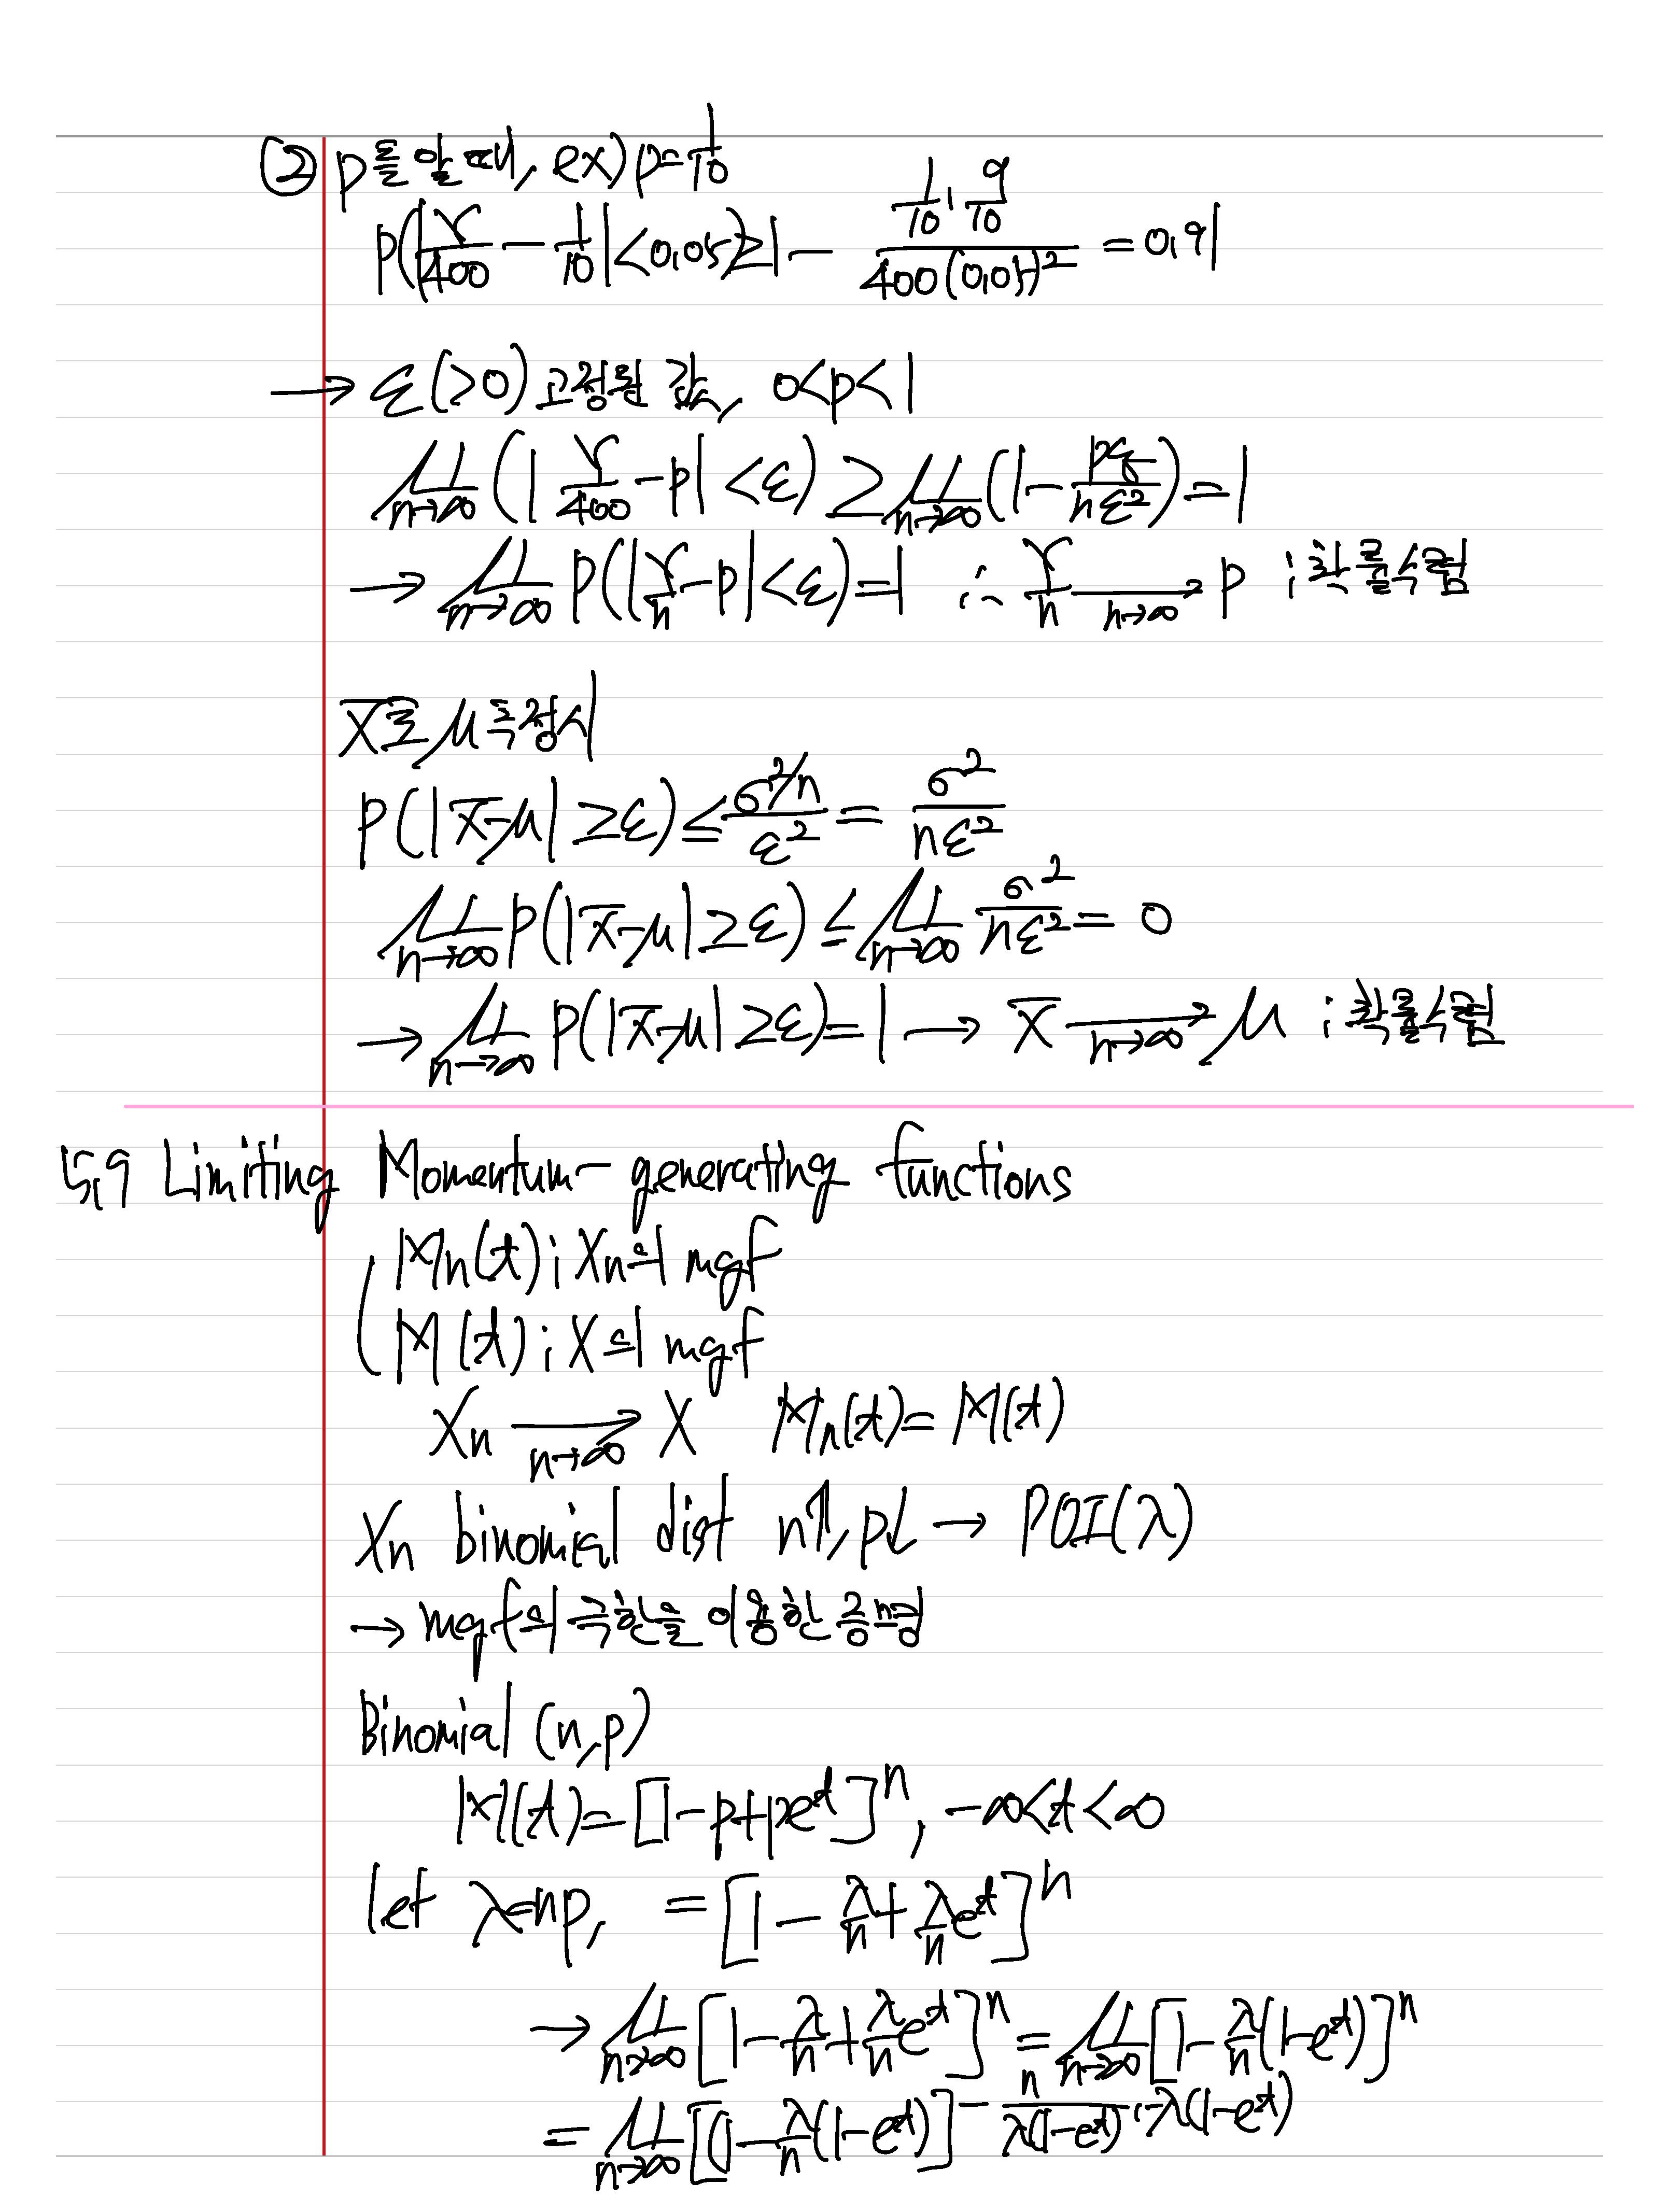 ② p를 알 때, ex) p=1/10
P(|Y/400 - 1/10|<0.05)≥1 - (1/10 · 9/10)/(400(0.05)²) = 0.91
→ ε(>0) 고정된 값, 0<p<1
lim n→∞ (|Y/400 - p|<ε) ≥ lim n→∞ (1 - pq/nε²) = 1
→ lim n→∞ P(|Y/n - p|<ε)=1 ∴ Y/n →(n→∞) p : 확률수렴
X̄로 μ 측정시
P(|X̄-μ|≥ε) ≤ (σ²/n)/ε² = σ²/nε²
lim n→∞ P(|X̄-μ|≥ε) ≤ lim n→∞ σ²/nε² = 0
→ lim n→∞ P(|X̄-μ|≥ε)=1 → X̄ →(n→∞) μ : 확률수렴
5.9 Limiting Momentum-generating functions
Mn(t) ; Xn의 mgf
M(t) ; X의 mgf
Xn →(n→∞) X Mn(t)=M(t)
Xn binomial dist n↑, p↓ → POI(λ)
→ mgf의 극한을 이용한 증명
Binomial (n,p)
M(t)=[1-p+pe^t]^n, -∞<t<∞
let λ=np, =[1 - λ/n + λ/n e^t]^n
→ lim n→∞ [1 - λ/n + λ/n e^t]^n = lim n→∞ [1 - λ/n(1-e^t)]^n
= lim n→∞ [(1 - λ/n(1-e^t)]^(- n/λ(1-e^t) · -λ(1-e^t))